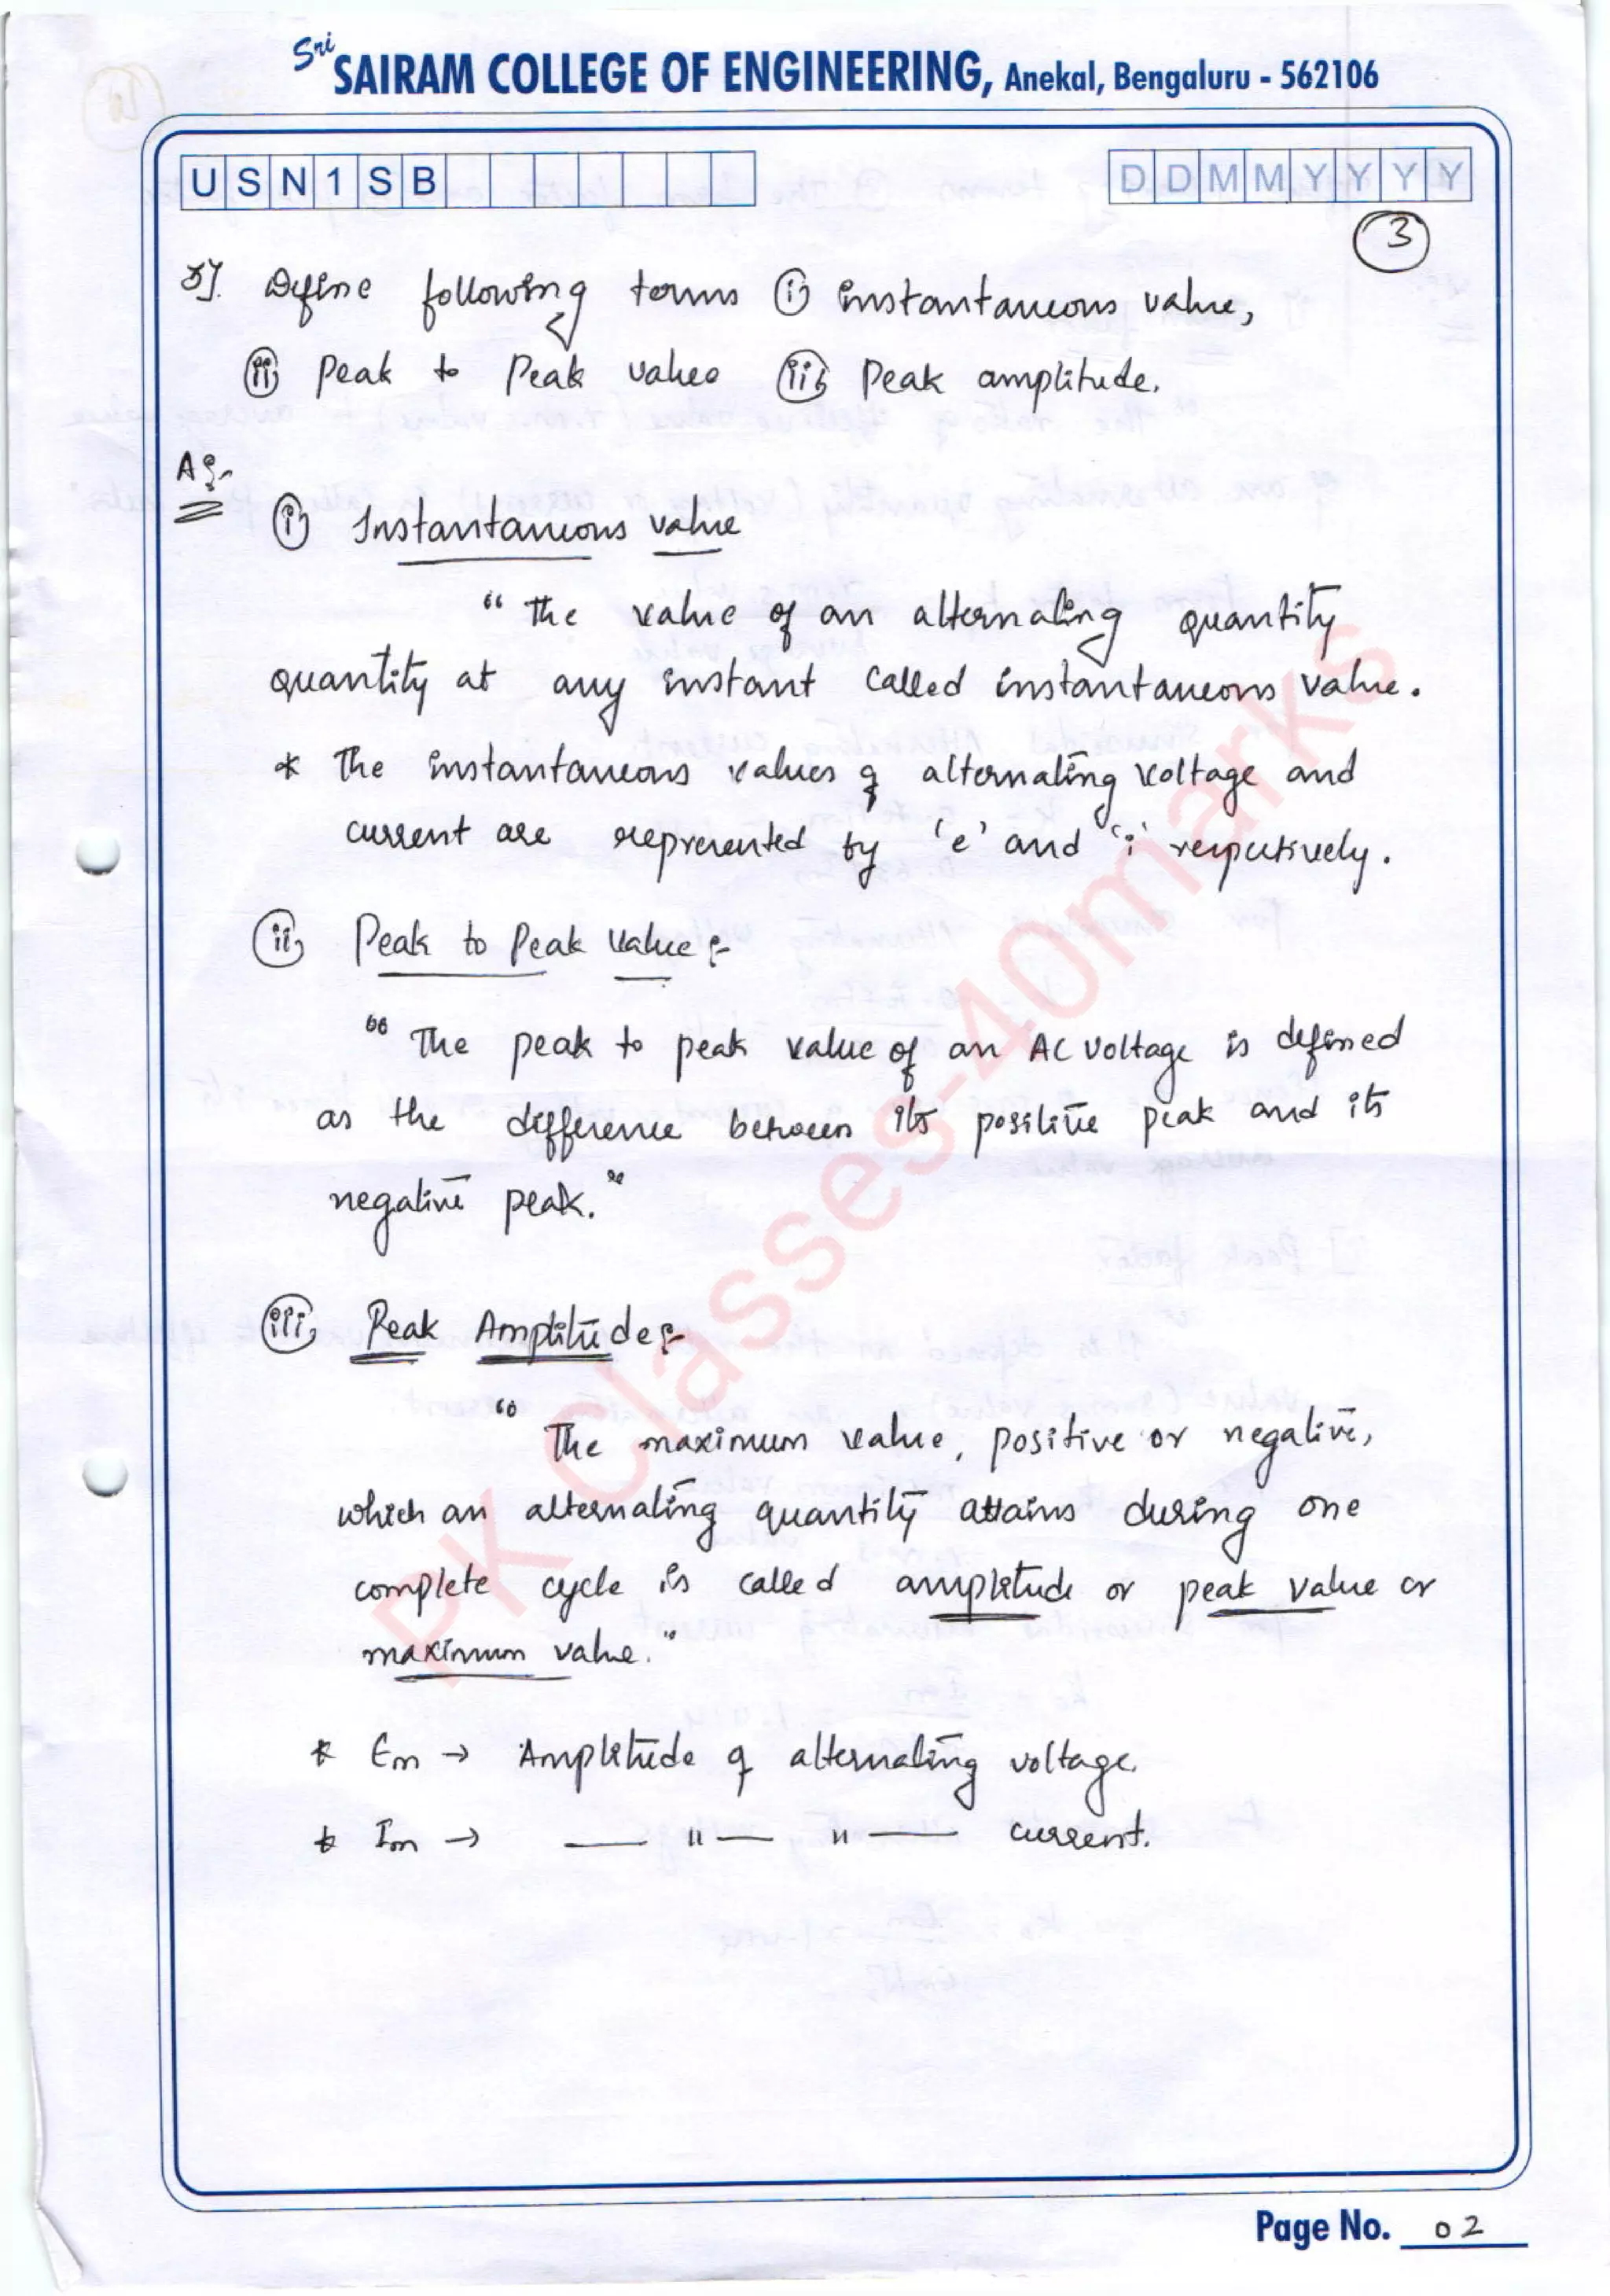 Sri SAIRAM COLLEGE OF ENGINEERING, Anekal, Bengaluru - 562106
USN1SB DDMMYYYY
3
3]. Define following terms (i) instantaneous value,
(ii) Peak to Peak value (iii) Peak amplitude.
A:-
(i) Instantaneous value
" The value of an alternating quantity
quantity at any instant called instantaneous value.
* The instantaneous values of alternating voltage and
current are represented by 'e' and 'i' respectively.
(ii) Peak to Peak value:-
" The peak to peak value of an AC voltage is defined
as the difference between its positive peak and its
negative peak."
(iii) Peak Amplitude:-
" The maximum value, positive or negative,
which an alternating quantity attains during one
complete cycle is called amplitude or peak value or
maximum value."
* Em → Amplitude of alternating voltage.
* Im → — " — " — current.
PK Classes-40marks
Page No. 02